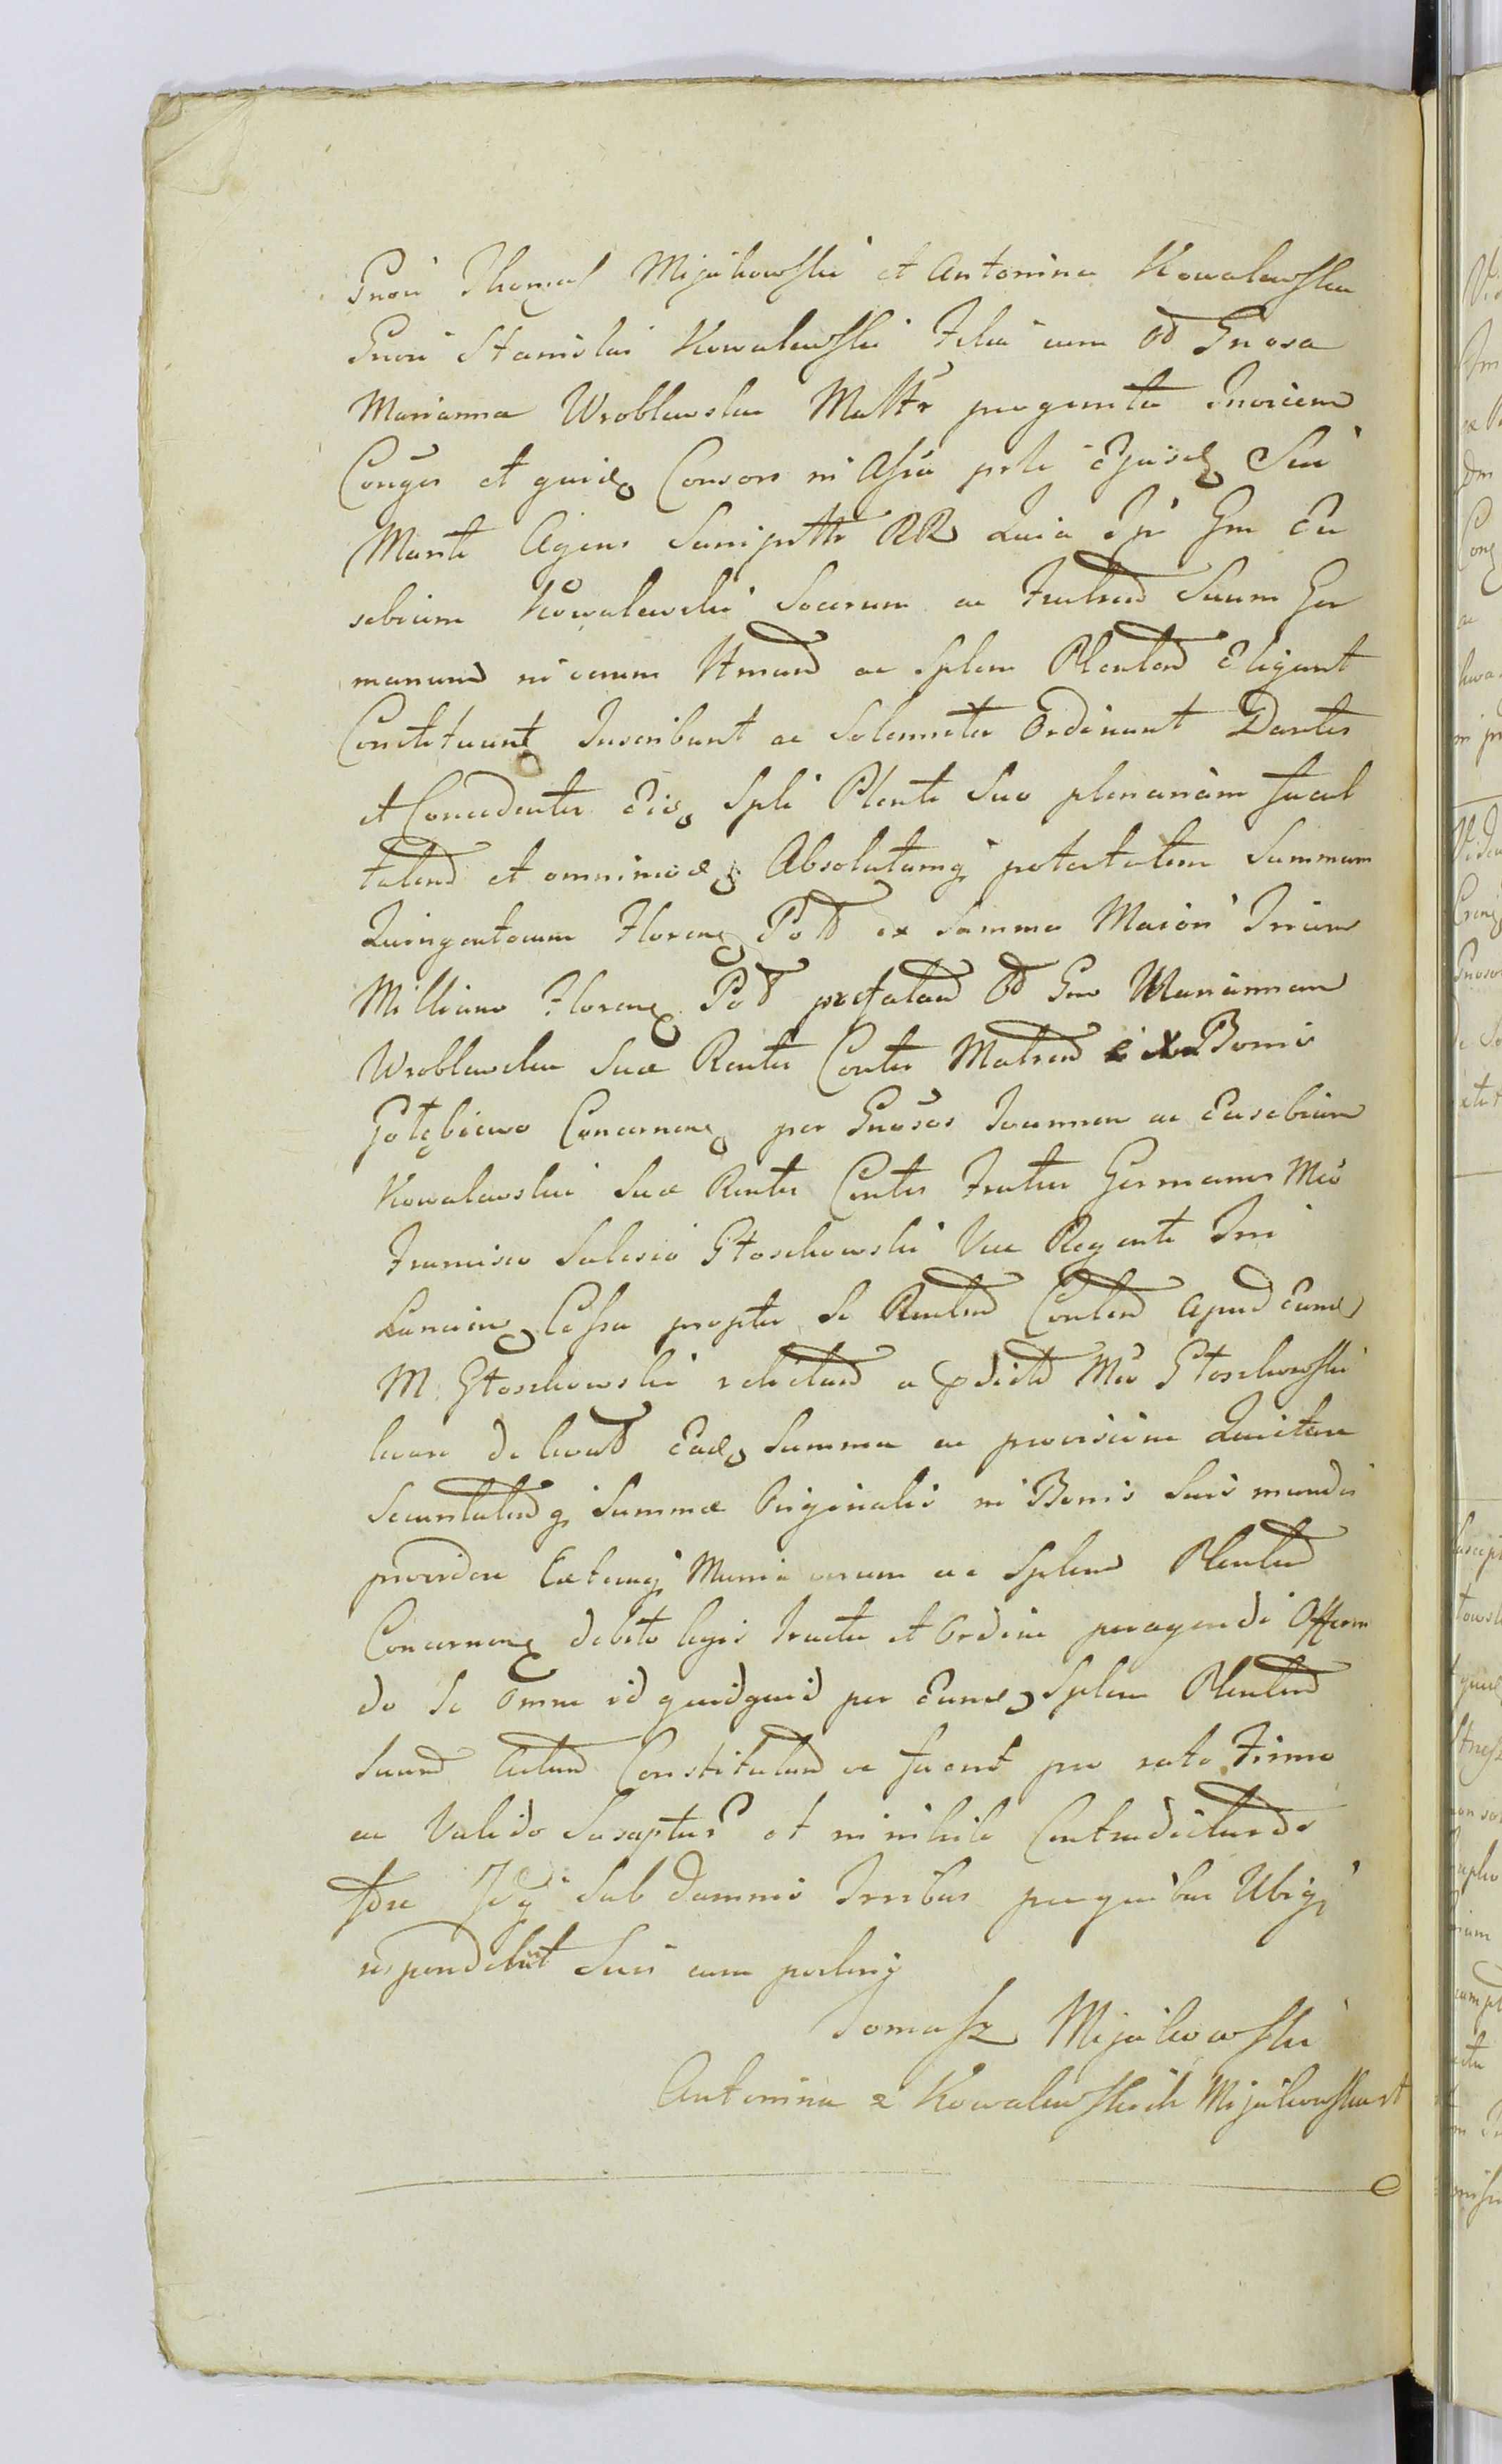 Gnosi Thomas Mijakowski et Antonina Kowalewska
Gnosi Stanislai Kowalewski Filia cum Od Gnosa
Marianna Wroblewska Mattr progenita Invicem
Conges et quid Consors in Assia prti Ejusd Sui
Mariti Agens Sani pttr RR Quia Ipi Gm Eu
sebium Kowalewski Socerum ac Fratrem Suum Ger
manum in verum Ltmum ac Splem Plentem Eligunt
Constituunt Inscribunt ac Solenniter Ordinant Dantes
et Concedentes Eid Spli Plenti Suo plenariam facul
tatem et omnimod Absolutamq potestatem Summam
Quingentorum Floren Pol ex Summa Maiori Trium
Millium Floren Pol prefatam Od Gm Mariannam
Wroblewska Suae Rentes Contes Matrem ex Bonis
Gołębiewo Concernen per Gnosos Joannem ac Eusebium
Kowalewskie Suae Rentes Contes Fratres Germanos Mco
Francisco Salesio Głoskowski Vice Regente Trri
Lancicien Cessa propter Se Rentem Contem apud Eund
M. Głoskowski relictam a prdicto Mco Głoskowski
levare de levat Ead Summa ac provisione Quietare
Securitatemq Summae Originalis in Bonis Suis mundis
providere Caetaraq Munia verum ac Splem Plentem
Concernen debito legis tractu et Ordine peragendi Offeren
do Se Omne id quidquid per Eund Splem Plentem
Suum Actum Constitutum ve fuerit pro rato Firmo
ac Valido Suscepturos et in nihilo Contradicturos
fore Idq sub damnis Trribus pro quibus Ubiq
respondebunt Suis cum posteris
Tomasz Mijakowski
Antonina z Kowalewskich Mijakowska